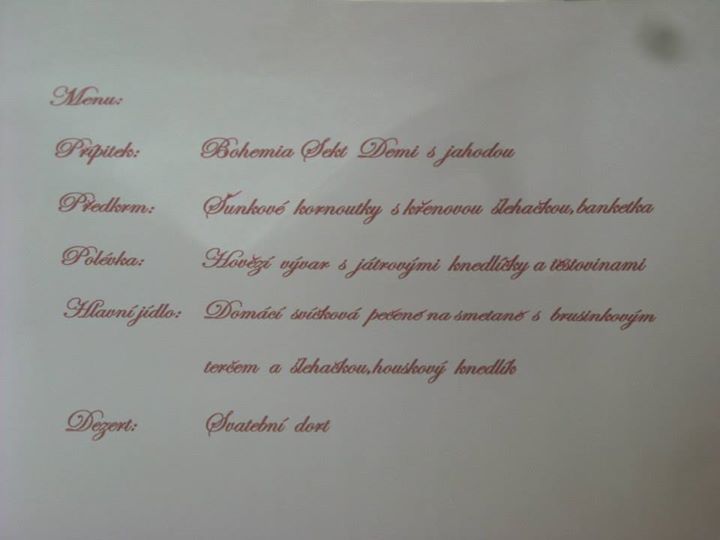 Menu:
Přípitek: Bohemia Sekt Demi s jahodou
Předkrm: Šunkové kornoutky s křenovou šlehačkou,banketka
Polévka: Hovězí vývar s játrovými knedlíčky a těstovinami
Hlavní jídlo: Domácí svíčková pečeně na smetaně s brusinkovým
terčem a šlehačkou,houskový knedlík
Dezert: Svatební dort